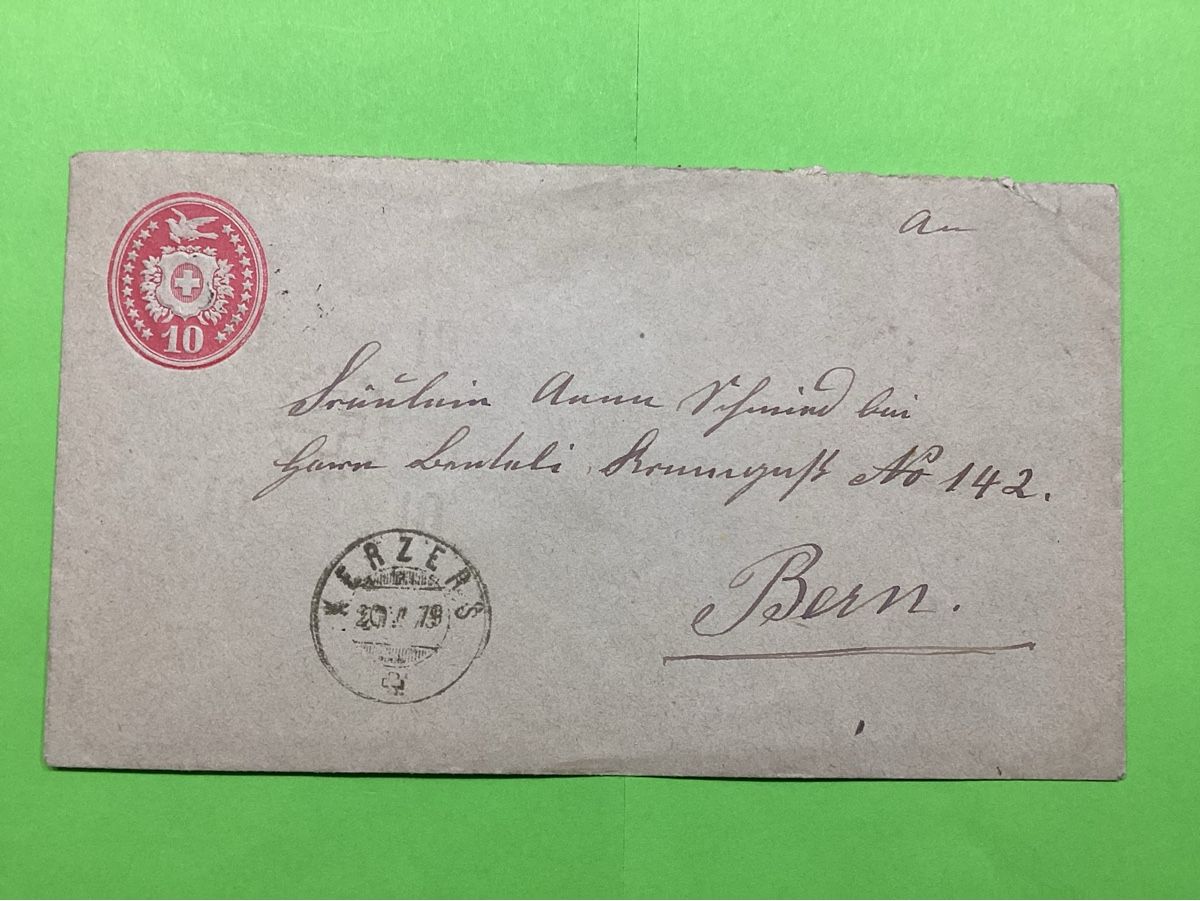 10
An
Fräulein Anna Schmied bei
Herrn Benteli, Kramgasse No 142.
Bern.
KERZERS
79